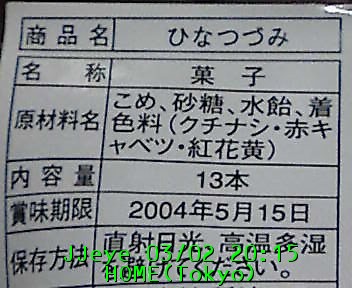 商品名 ひなつづみ
名称 菓子
原材料名 こめ、砂糖、水飴、着
色料(クチナシ・赤キ
ャベツ・紅花黄)
内容量 13本
賞味期限 2004年5月15日
保存方法 直射日光、高温多湿
ください。
JJeye 03/02 20:15
HOME(Tokyo)